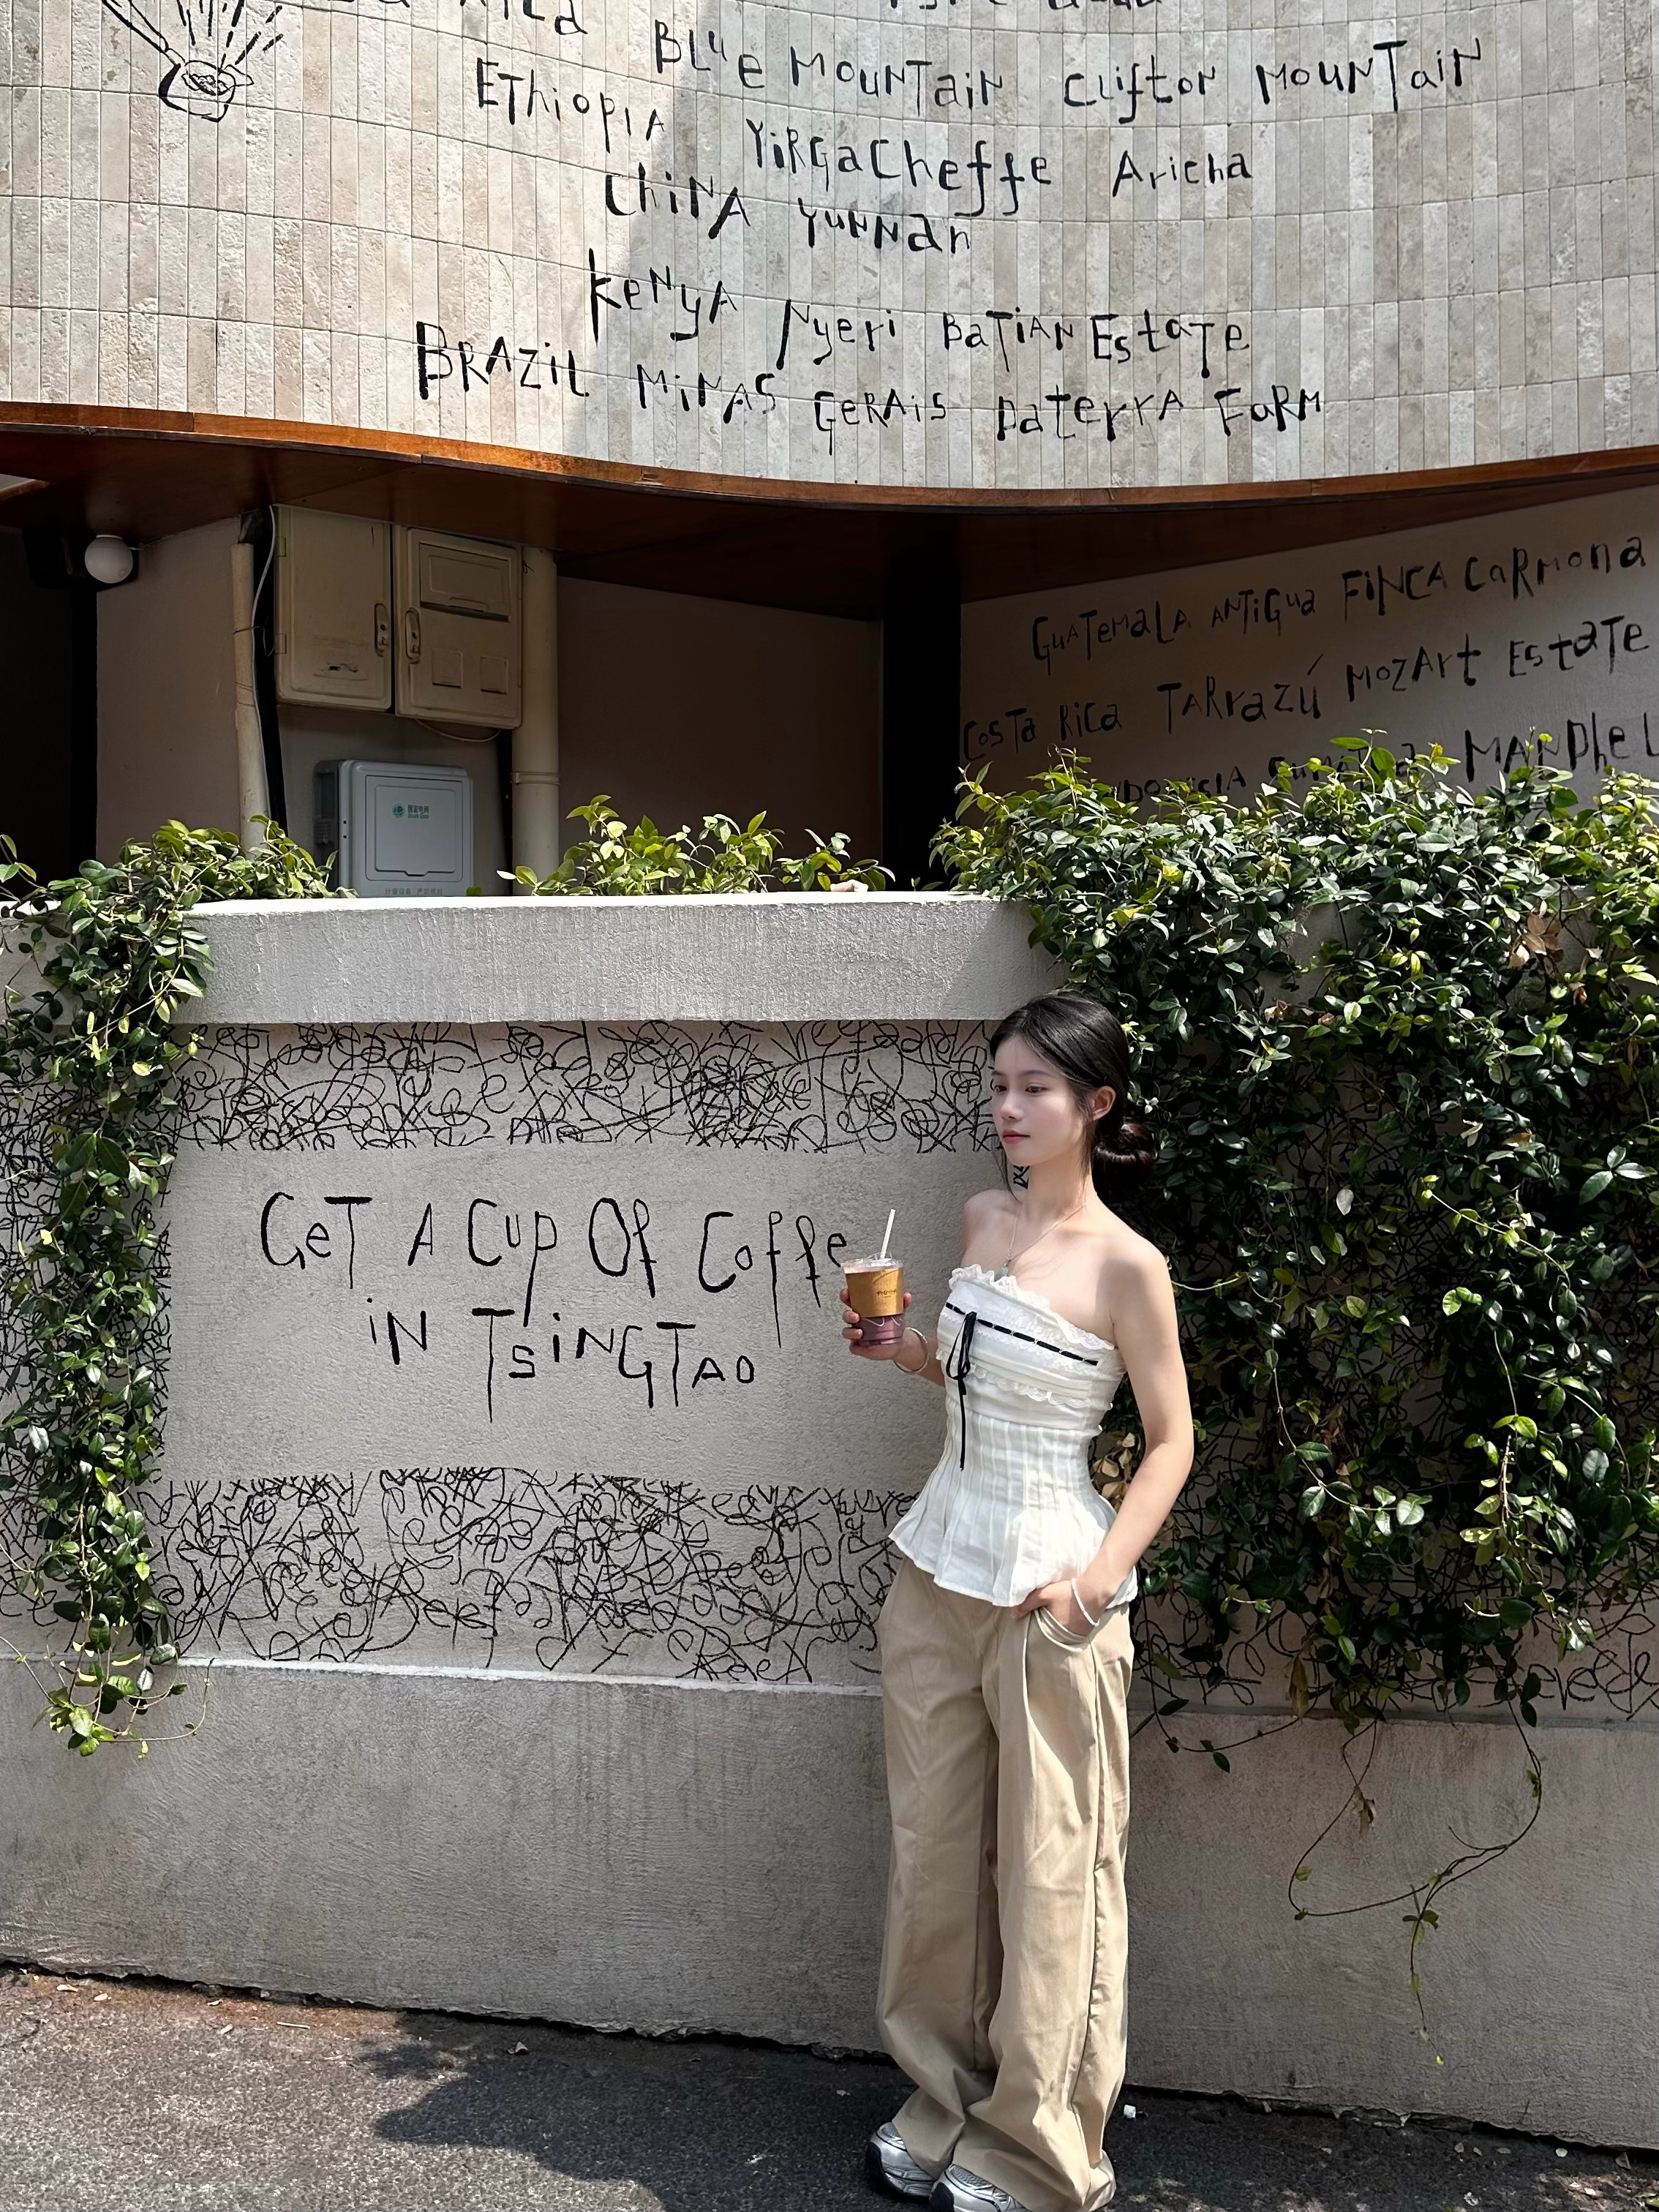 BLuE MOuNTaiN Clifton MOuNTaiN
EThiopiA YiRGaCheffe Aricha
ChiNA YuNNan
KeNyA Nyeri BaTiAN EstaTe
BRAZiL MiNAS GeRAiS DaterrA FaRM
GuATeMaLA ANTiGua FiNCA CaRMona
CosTa RiCa TARrazú MozArt EstaTe
MANDheL
国家电网
GeT A Cup Of Coffe
iN TsiNGTAO